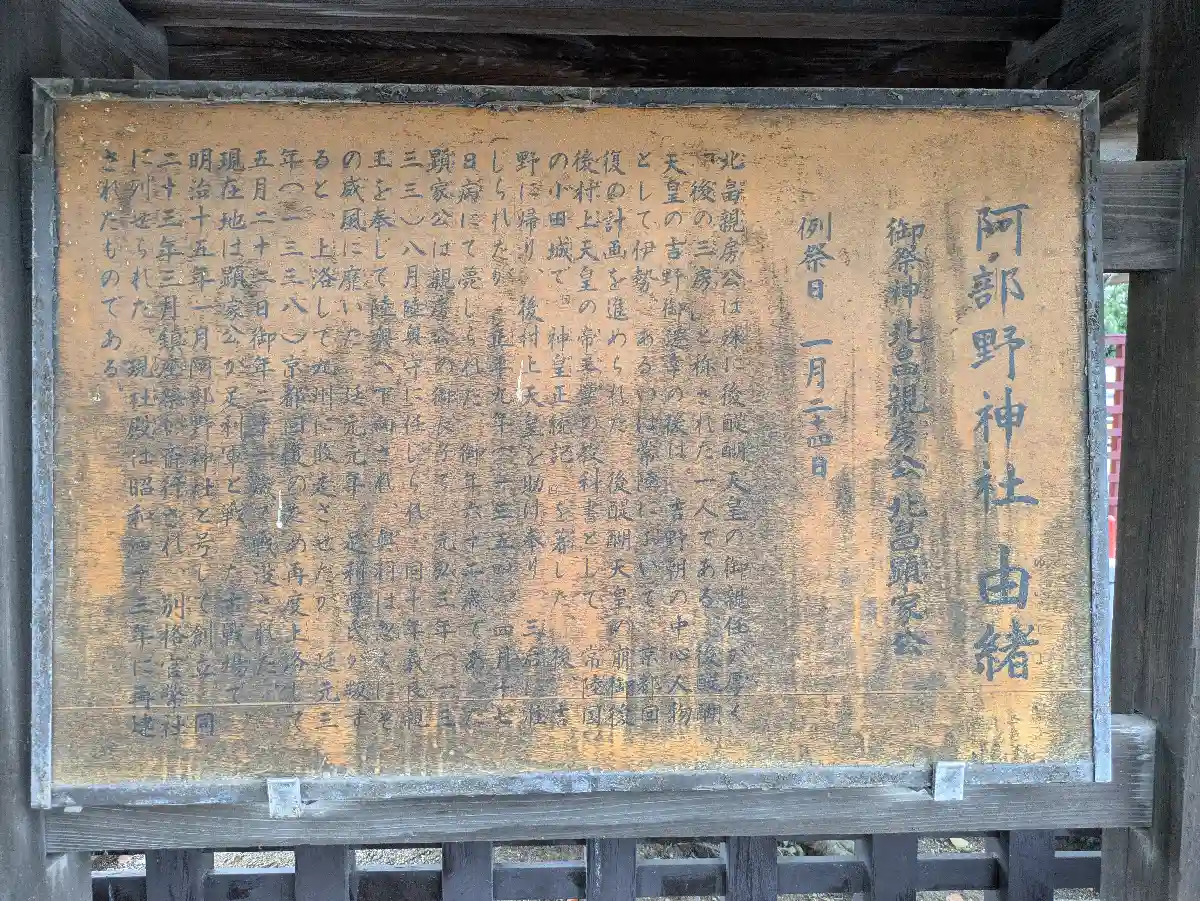 阿部野神社由緒
御祭神 北畠親房公 北畠顕家公
例祭日 一月二十四日
北畠親房公は殊に後醍醐天皇の御親任が厚く
「後の三房」と称された一人である。後醍醐
天皇の吉野御遷幸の後は、吉野朝の中心人物
として伊勢、あるいは常陸において京都回
復の計画を進められた。後醍醐天皇の崩御後
後村上天皇の帝王学の教科書として、常陸国
の小田城で「神皇正統記」を著した。後、吉
野に帰り、後村上天皇を助け奉り、三后に准
じられたが、正平九年(一三五四)四月十七
日病にて薨じられた。御年六十二歳であった
顕家公は親房公の御長子で、元弘三年(一三
三三)八月陸奥守に任じられ、同十年義良親
王を奉じて陸奥へ下向され、奥羽は忽にそ
の威風に靡いた。延元元年、足利尊氏が叛す
ると、上洛して九州に敗走させたが、延元三
年(一三三八)京都回復のため再度上洛して
五月二十二日御年二十一歳で戦没された。
現在地は顕家公が足利軍と戦った古戦場で
明治十五年一月阿部野神社と号して創立、同
二十三年三月鎮座祭が斎行され、別格官幣社
に列せられた。現社殿は昭和四十三年に再建
されたものである